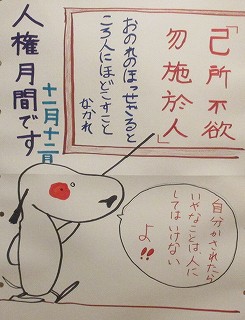 「己所不欲
勿施於人」
おのれのほっせざると
ころ人にほどこすこと
なかれ
十一月十二月
人権月間です
自分がされたら
いやなことは、人に
してはいけない
よ!!